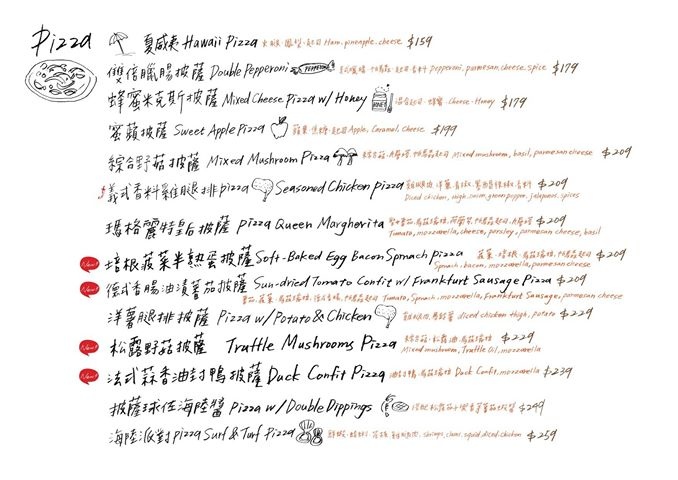 Pizza
夏威夷 Hawaii Pizza 火腿·鳳梨·起司 Ham, pineapple, cheese $159
雙倍臘腸披薩 Double Pepperoni PEPPERONI Pepperoni, parmesan, cheese, spice $179
蜂蜜米克斯披薩 Mixed Cheese Pizza w/ Honey HONEY 綜合起司·蜂蜜 Cheese·Honey $179
蜜蘋披薩 Sweet Apple Pizza 蘋果·焦糖·起司 Apple, Caramel, Cheese $199
綜合野菇披薩 Mixed Mushroom Pizza Mixed mushroom, basil, parmesan cheese $209
義式香料雞腿排pizza Seasoned Chicken pizza $209
Diced chicken, thigh, onion, green pepper, jalapenos, spices
瑪格麗特皇后披薩 pizza Queen Margherita
Tomato, mozzarella, cheese, parsley, parmesan cheese, basil
New! 培根菠菜半熟蛋披薩 Soft-Baked Egg Bacon Spinach pizza 菠菜·培根 $209
Spinach, bacon, mozzarella, parmesan cheese
New! 德式香腸油漬蕃茄披薩 Sun-dried Tomato Confit w/ Frankfurt Sausage Pizza $209
Tomato, Spinach, mozzarella, Frankfurt Sausage, parmesan cheese
洋薯腿排披薩 Pizza w/ Potato & Chicken diced chicken thigh, potato $229
New! 松露野菇披薩 Truffle Mushrooms Pizza $229
Mixed mushroom, Truffle Oil, mozzarella
New! 法式蒜香油封鴨披薩 Duck Confit Pizza Duck Confit, mozzarella $239
披薩球佐海陸醬 Pizza w/ Double Dippings $249
海陸派對pizza Surf & Turf Pizza shrimps, clams, squid, diced chicken $259